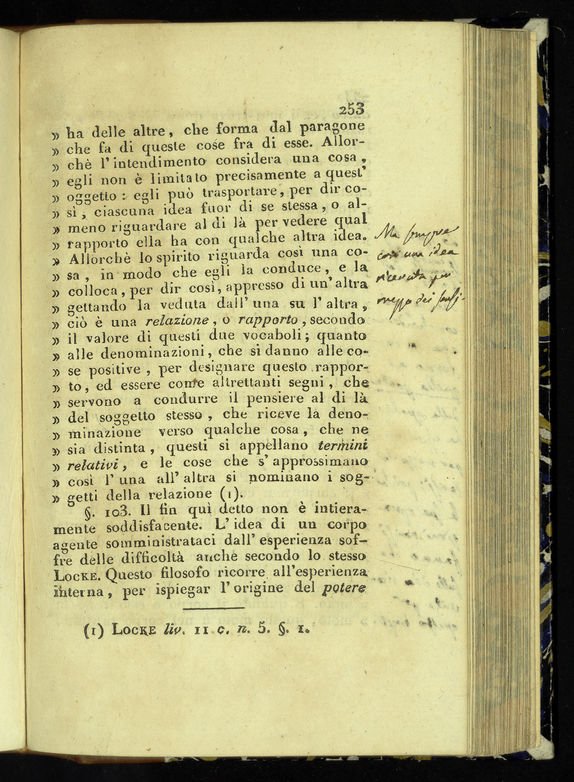 253
» ha delle altre, che forma dal paragone
» che fa di queste cose fra di esse. Allor-
» chè l'intendimento considera una cosa,
» egli non è limitato precisamente a quest'
» oggetto : egli può trasportare, per dir co-
» sì, ciascuna idea fuor di se stessa, o al-
» meno riguardare al di là per vedere qual
» rapporto ella ha con qualche altra idea.
» Allorchè lo spirito riguarda così una co-
» sa, in modo che egli la conduce, e la
» colloca, per dir così, appresso di un'altra
» gettando la veduta dall'una su l'altra,
» ciò è una relazione, o rapporto, secondo
» il valore di questi due vocaboli; quanto
» alle denominazioni, che si danno alle co-
» se positive, per designare questo rappor-
» to, ed essere come altrettanti segni, che
» servono a condurre il pensiere al di là
» del soggetto stesso, che riceve la deno-
» minazione verso qualche cosa, che ne
» sia distinta, questi si appellano termini
» relativi, e le cose che s'approssimano
» così l'una all'altra si nominano i sog-
» getti della relazione (1).
§. 103. Il fin quì detto non è intiera-
mente soddisfacente. L'idea di un corpo
agente somministrataci dall'esperienza sof-
fre delle difficoltà anche secondo lo stesso
LOCKE. Questo filosofo ricorre all'esperienza
interna, per ispiegar l'origine del potere
(1) LOCKE liv. II c. n. 5. §. 1.
Ma sempre
con una idea
ricevuta per
mezzo dei sensi.